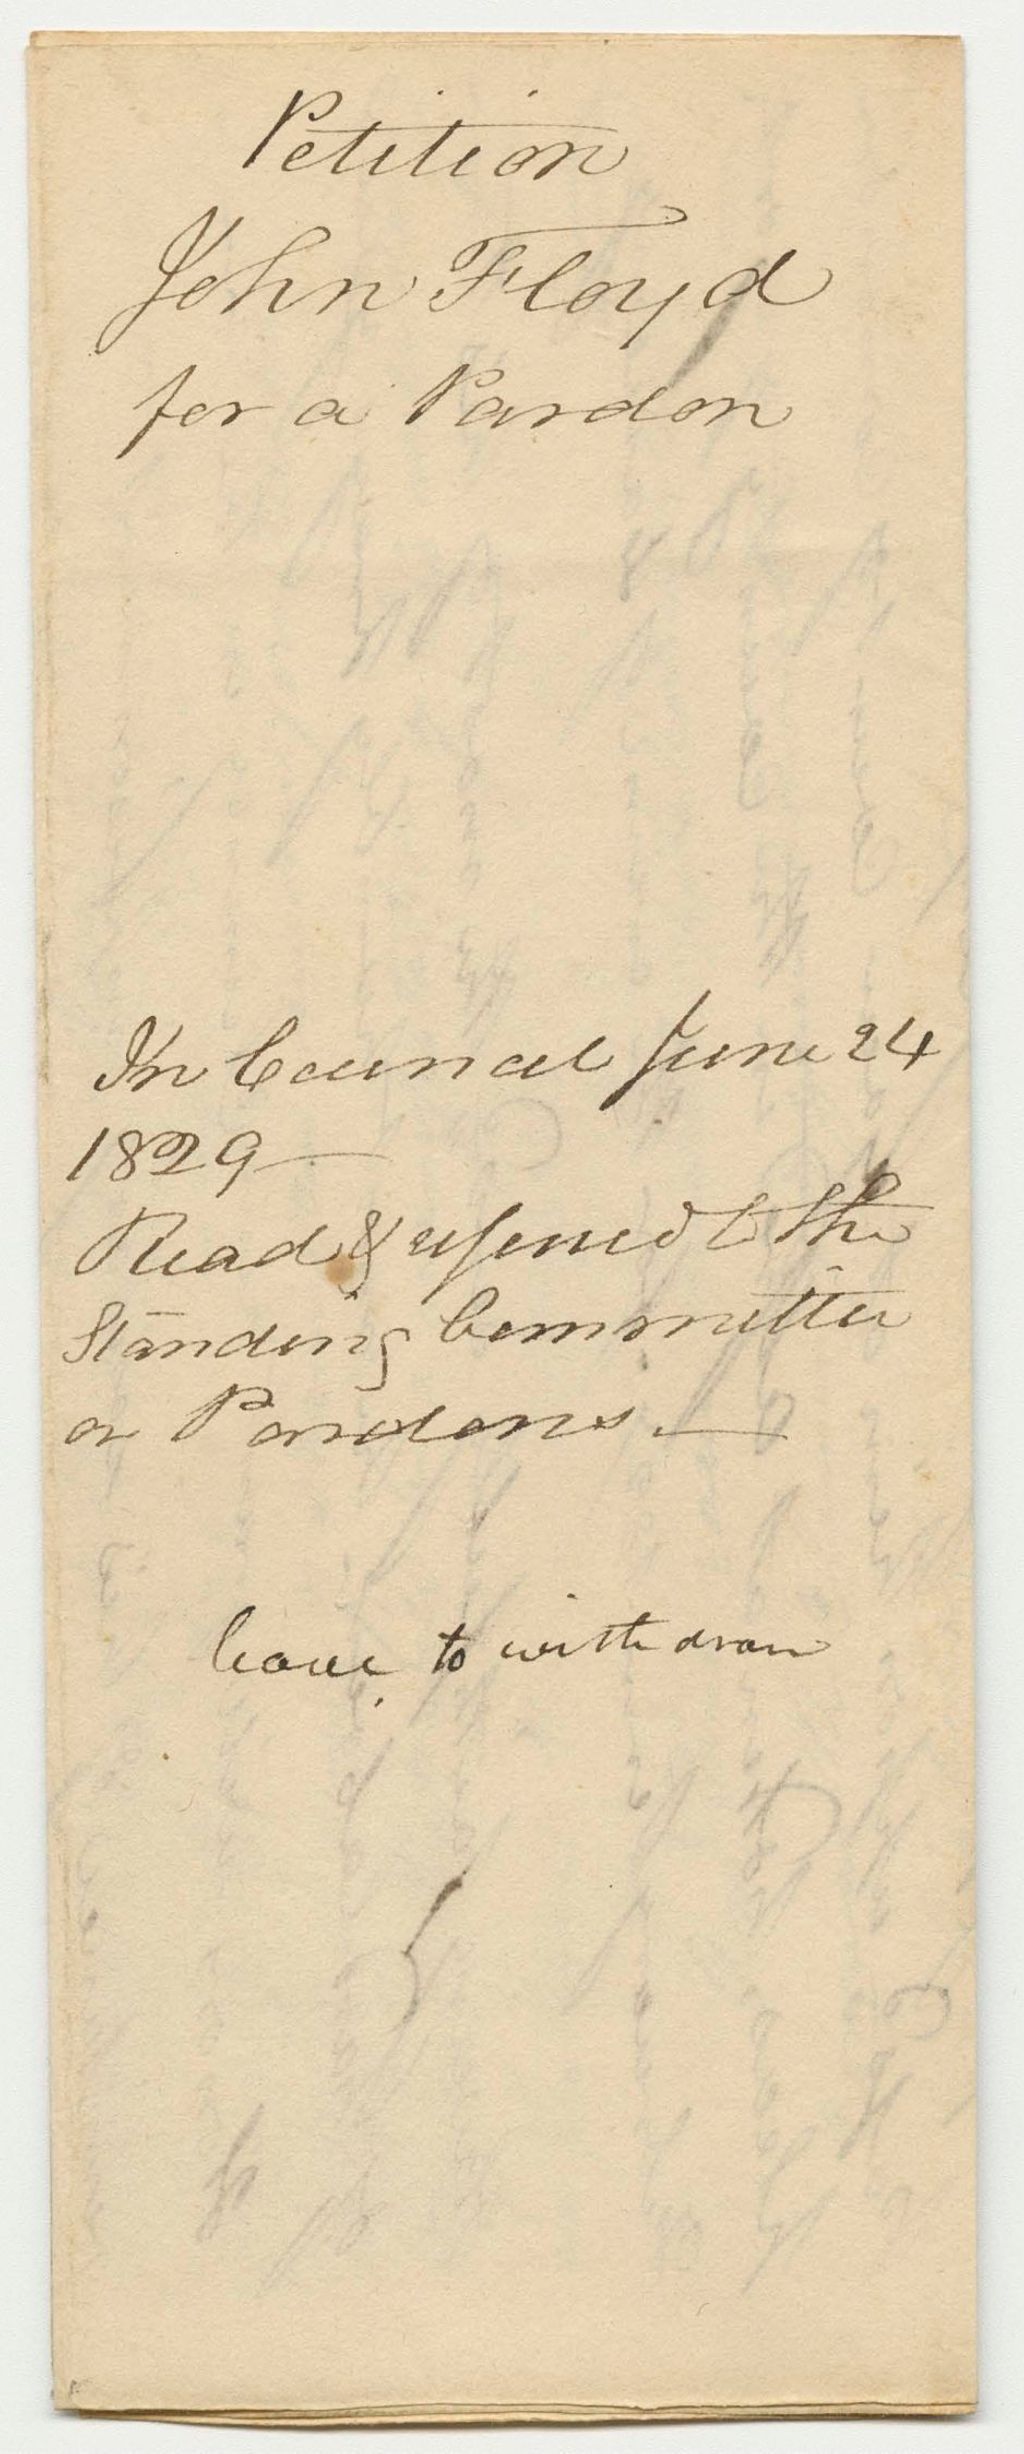 Petition
John Floyd
for a Pardon
In Council June 24
1829
Read & referred to the
Standing Committee
on Pardons.
leave to withdraw